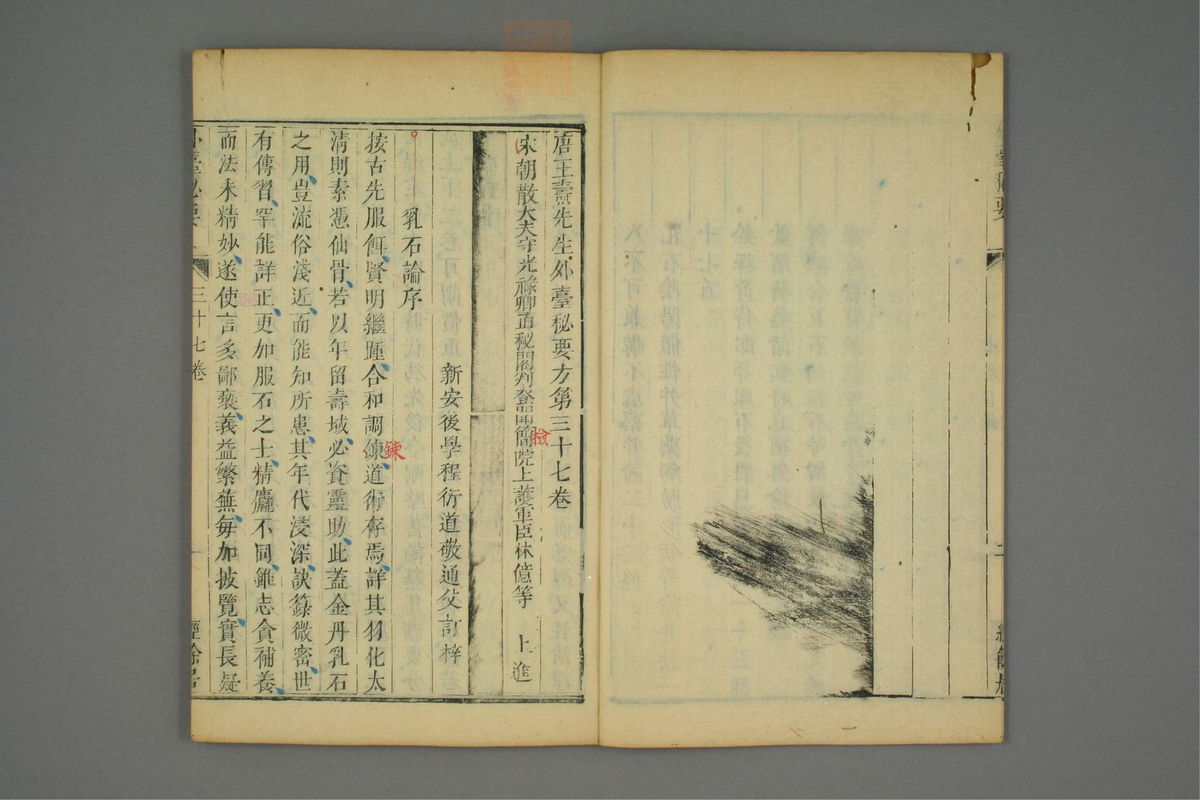 唐王燾先生外臺秘要方第三十七卷
宋朝散大夫守光祿卿直秘閣判登聞簡院上護軍臣林億等　上進
檢
新安後學程衍道敬通父訂梓
乳石論序
按古先服餌賢明繼踵合和調鍊道術存焉詳其羽化太
鍊
清則素憑仙骨若以年留壽域必資靈助此蓋金丹乳石
之用豈流俗淺近而能知所患其年代浸深訣籙微密世
有傳習罕能詳正更加服石之士精麤不同雖志貪補養
而法未精妙遂使言多鄙褻義益繁蕪每加披覽實長疑
外臺秘要
三十七卷
一
經餘居